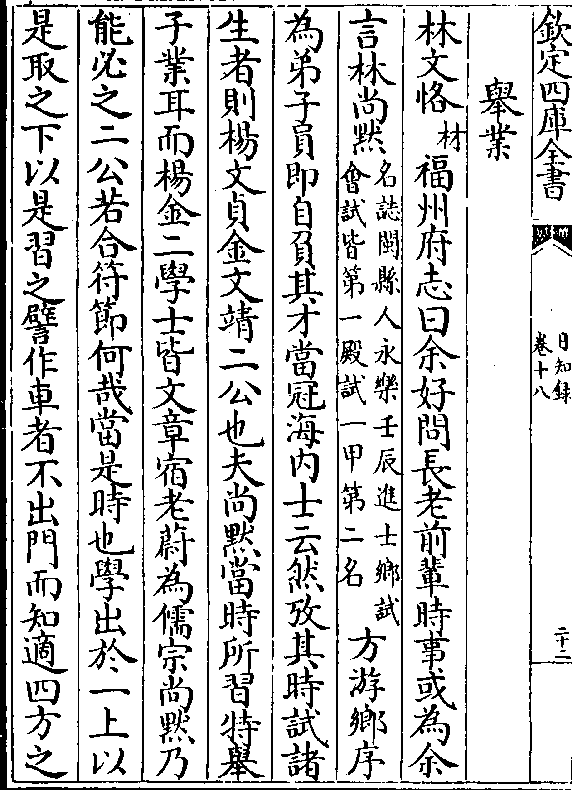 欽定四庫全書
日知錄
卷十八
二十二
舉業
林文恪材福州府志曰余好問長老前輩時事或為余
言林尚黙名誌閩縣人永樂壬辰進士鄉試會試皆第一殿試一甲第二名方游鄉序
為弟子員即自負其才當冠海内士云然攷其時試諸
生者則楊文貞金文靖二公也夫尚黙當時所習特舉
子業耳而楊金二學士皆文章宿老蔚為儒宗尚黙乃
能必之二公若合符節何哉當是時也學出於一上以
是取之下以是習之譬作車者不出門而知適四方之